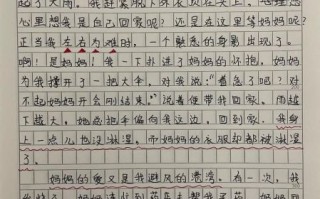 心里想我是自己回家呢？还是在这里等妈妈呢？
正当我左右为难时，一个魅惑的身影出现了。
啊！是妈妈！我一下扑进妈妈的怀抱。妈妈
为我撑开了一把大伞，对我说：“着急了吧？对
不起妈妈开会刚结束。”说着便带我回家。雨越
下越大，她总把伞偏向我这边。回到家，我身
上一点儿也没淋湿，而妈妈的衣服却都被淋湿
了。
妈妈的爱又是我避风的港湾。有一次，我